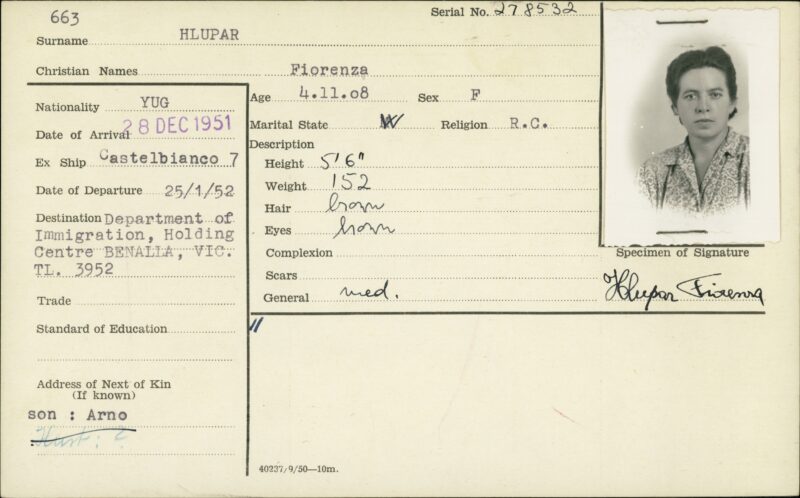 663
Serial No. 278532
Surname HLUPAR
Christian Names Fiorenza
Nationality YUG
Date of Arrival 28 DEC 1951
Ex Ship Castelbianco 7
Date of Departure 25/1/52
Destination Department of
Immigration, Holding
Centre BENALLA, VIC.
TL. 3952
Trade
Standard of Education
Address of Next of Kin
(If known)
son : Arno
Age 4.11.08 Sex F
Marital State W Religion R.C.
Description
Height 5'6"
Weight 152
Hair brown
Eyes brown
Complexion
Scars
General med.
Specimen of Signature
Hlupar Fiorenza
40237/9/50—10m.